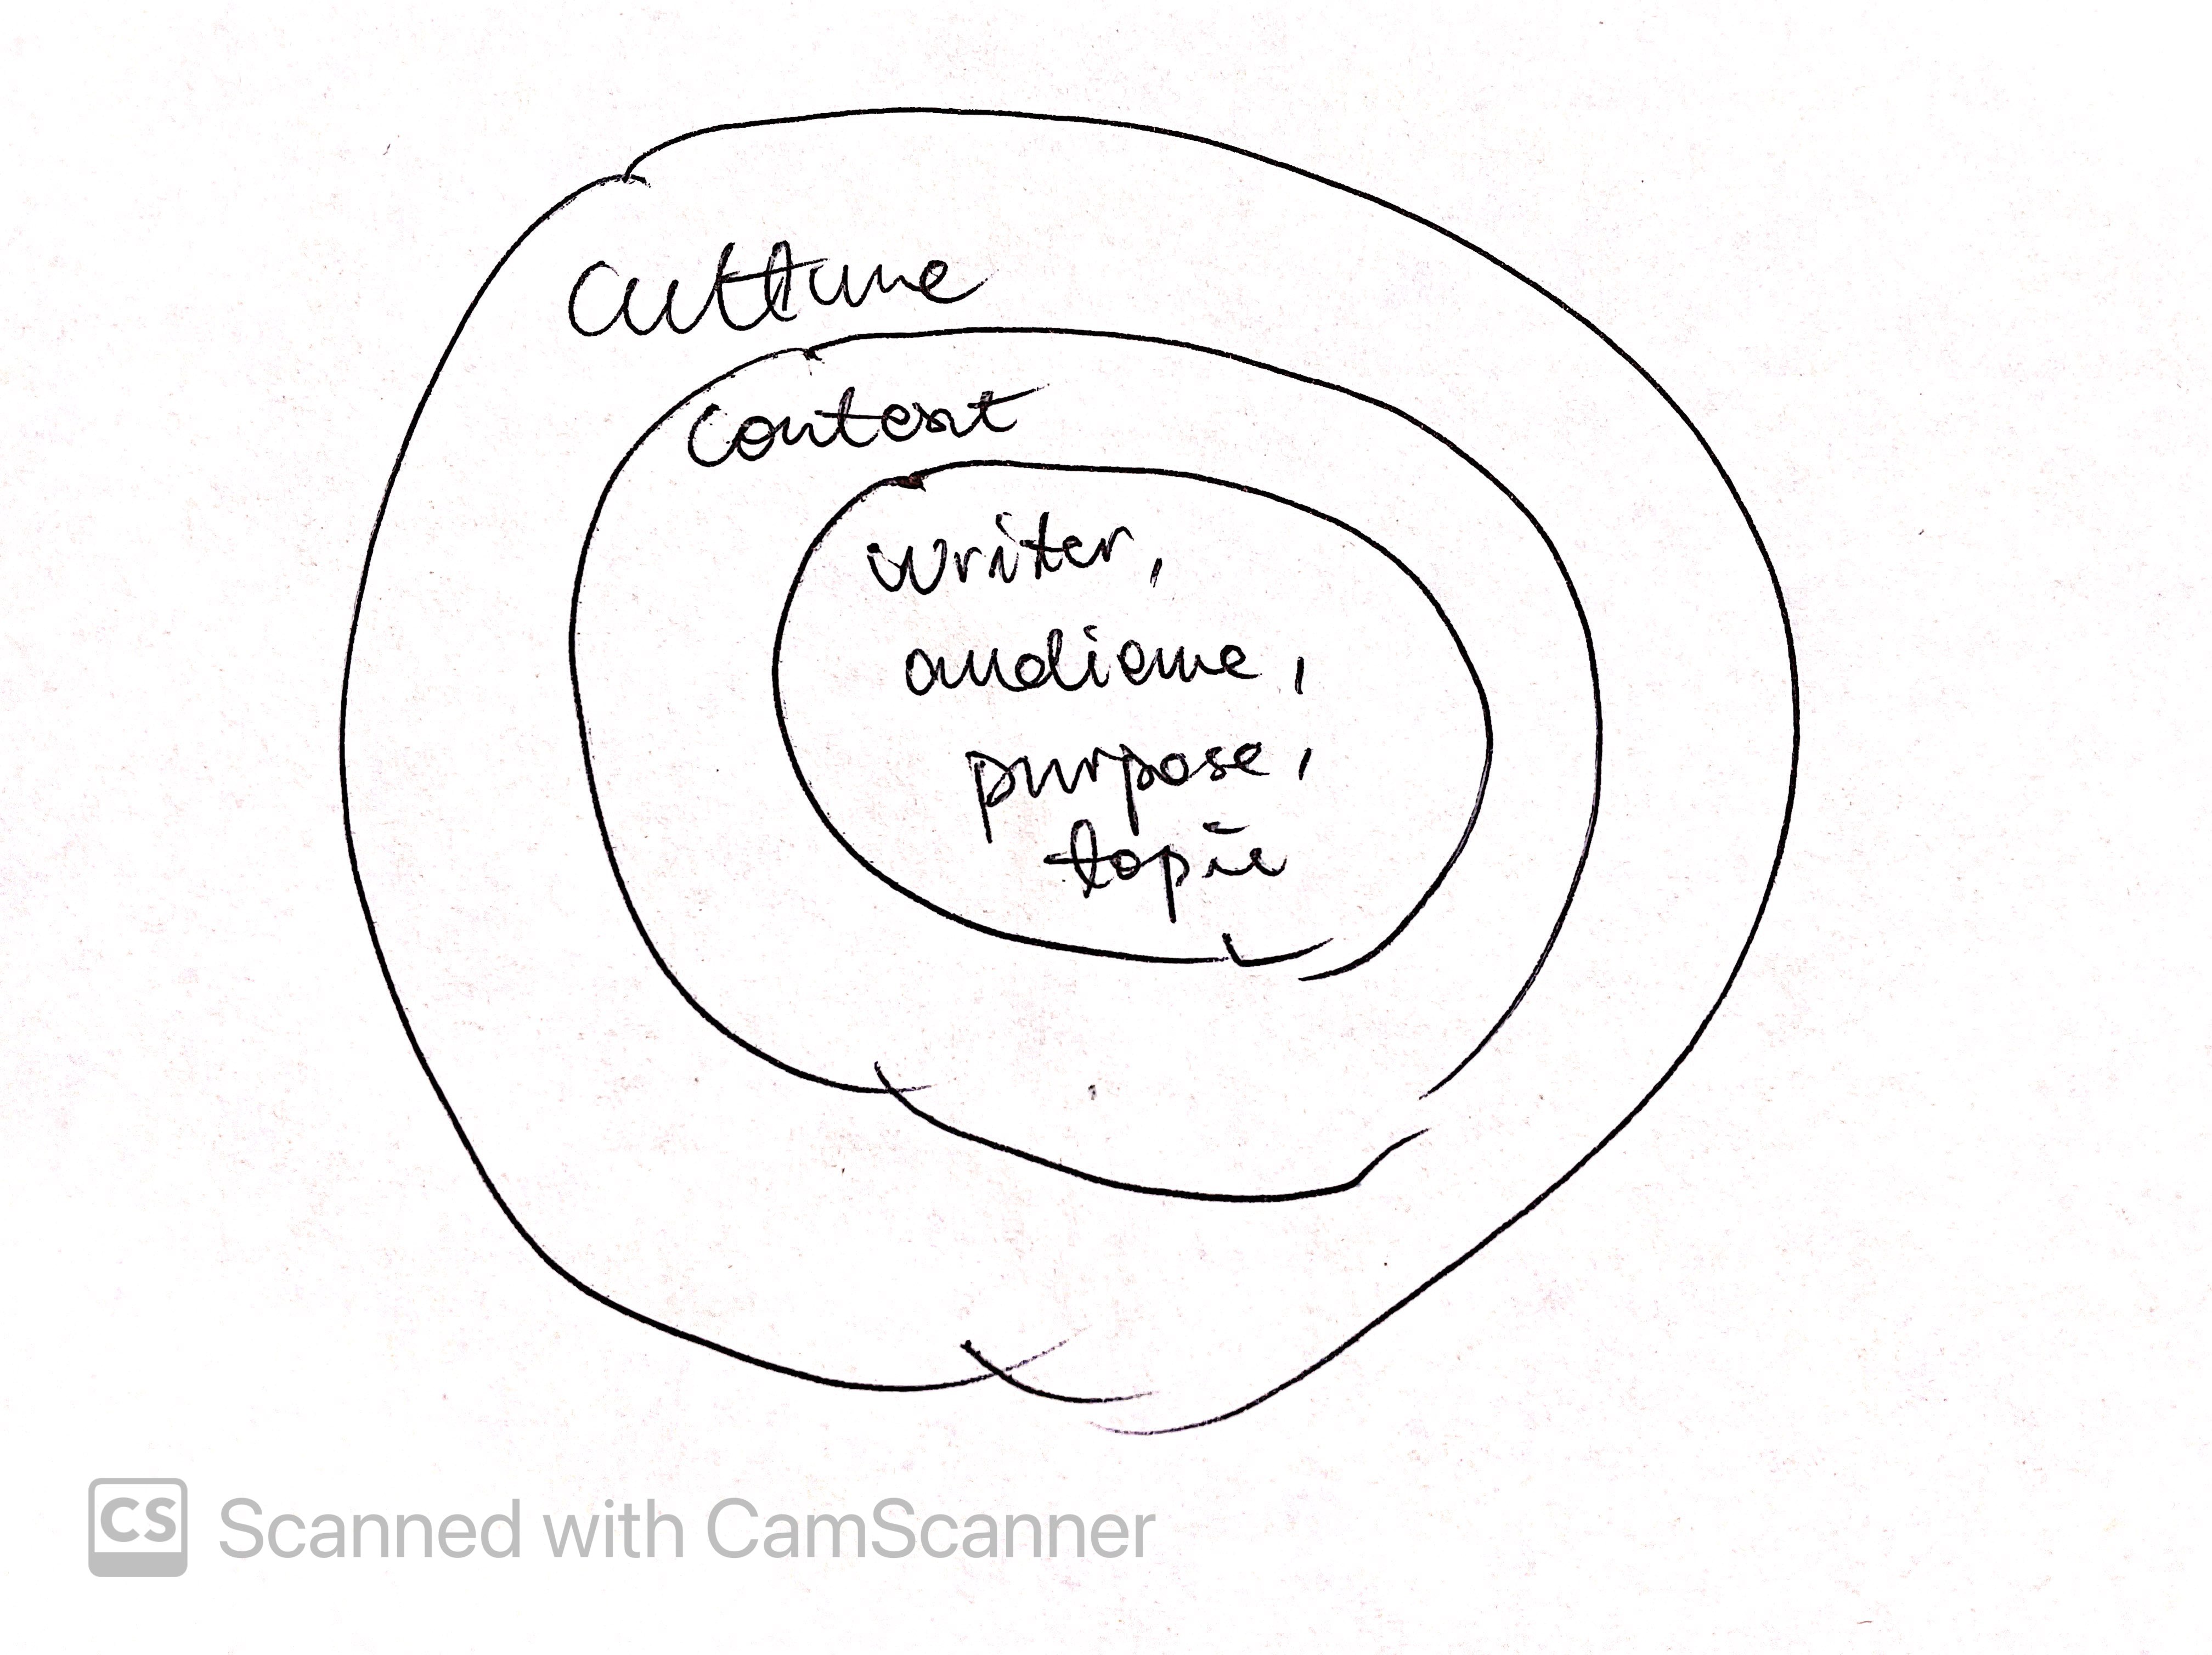 culture
context
writer,
audience,
purpose,
topic
CS Scanned with CamScanner